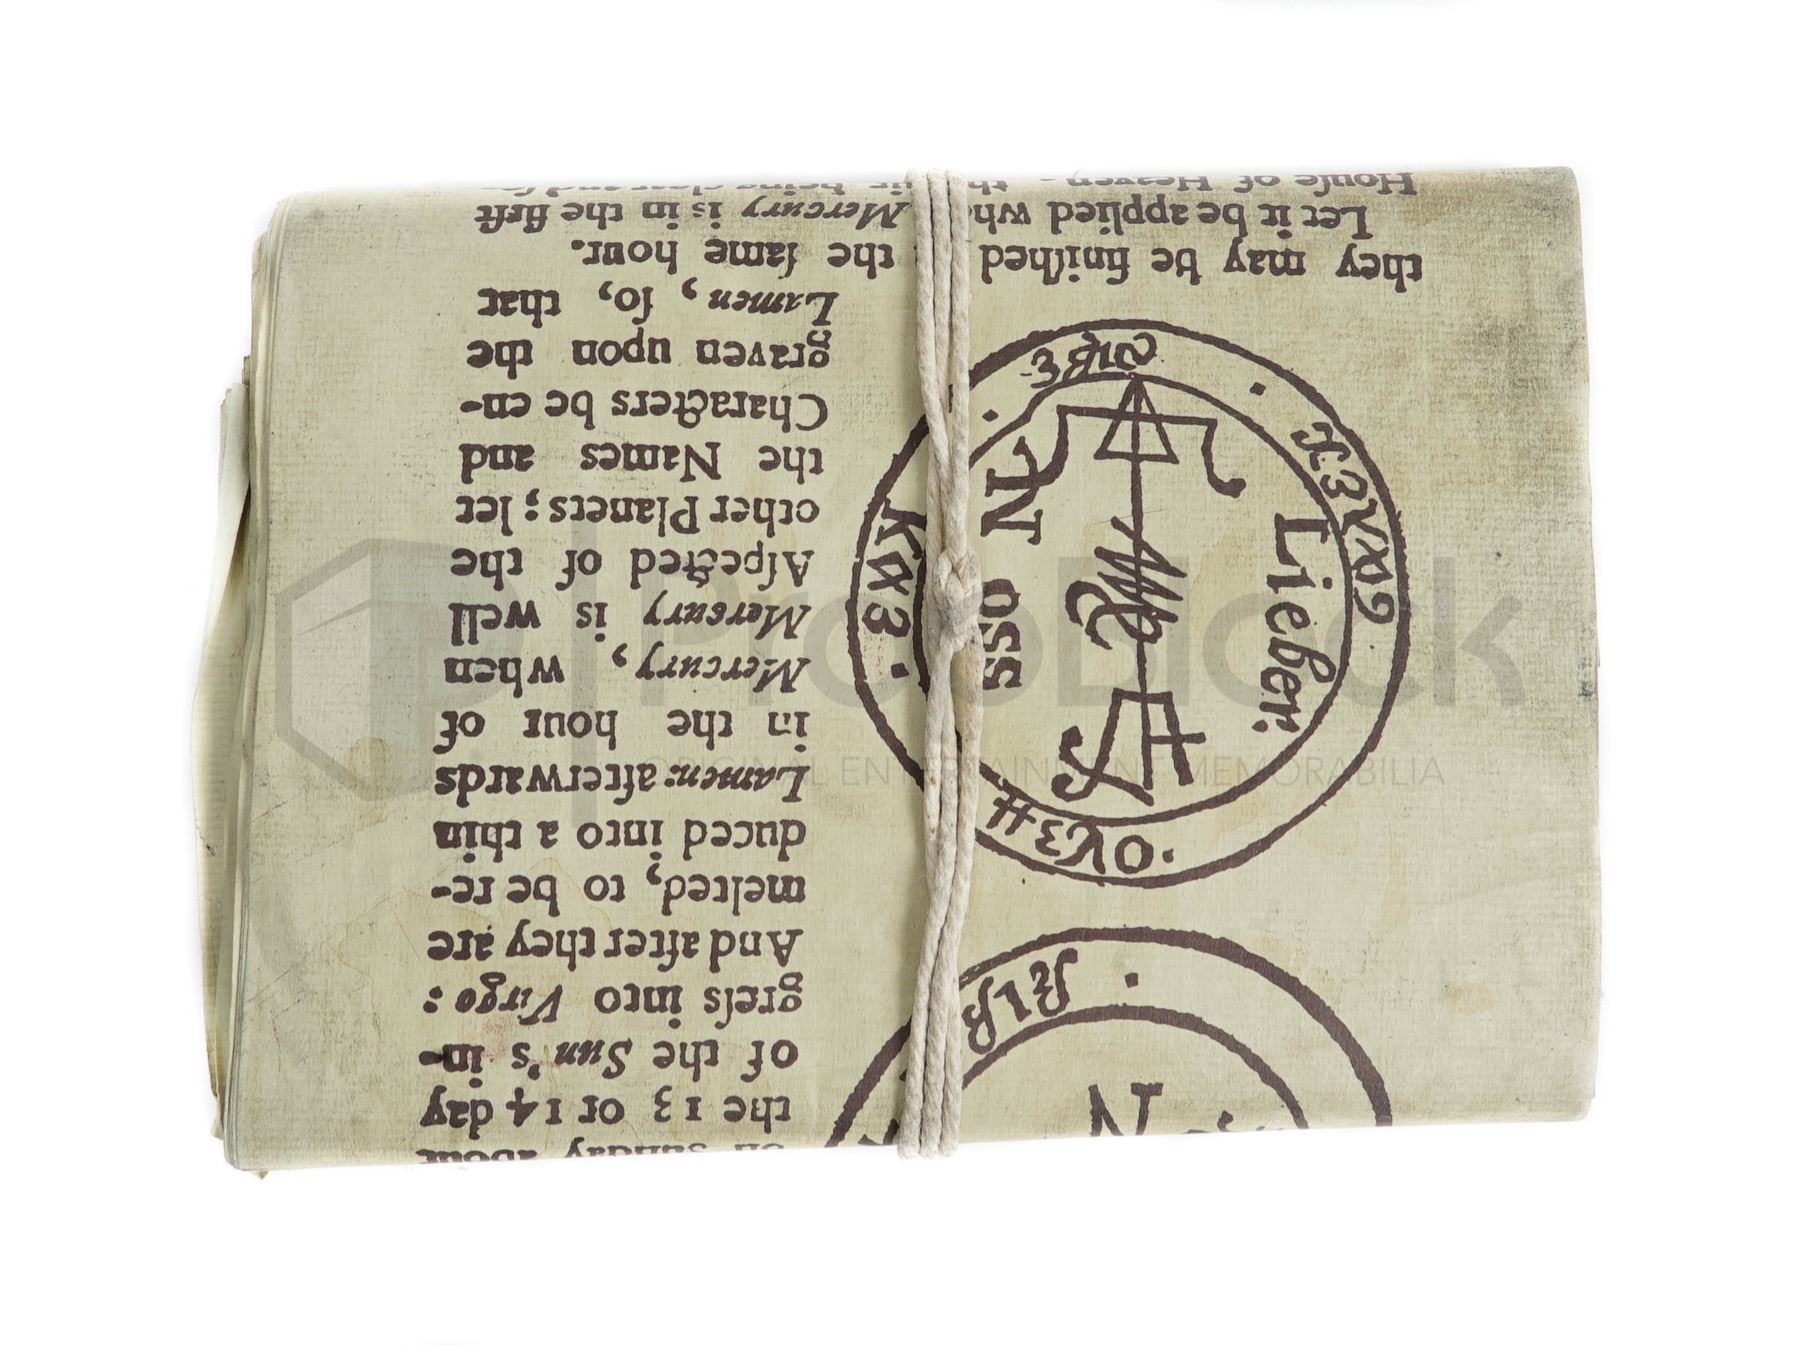 on Sunday about
the 13 or 14 day
of the Sun's in-
greſs into Virgo:
And after they are
melted, to be re-
duced into a thin
Lamen: afterwards
in the hour of
Mercury, when
Mercury is well
Aſpected of the
other Planets; let
the Names and
Characters be en-
graven upon the
Lamen, ſo, that
they may be finiſhed the ſame hour.
Let it be applied Mercury is in the firſt
Houſe of Heaven, being clear and
Lieber.
oss
N
PropBlock
ORIGINAL ENTERTAINMENT MEMORABILIA